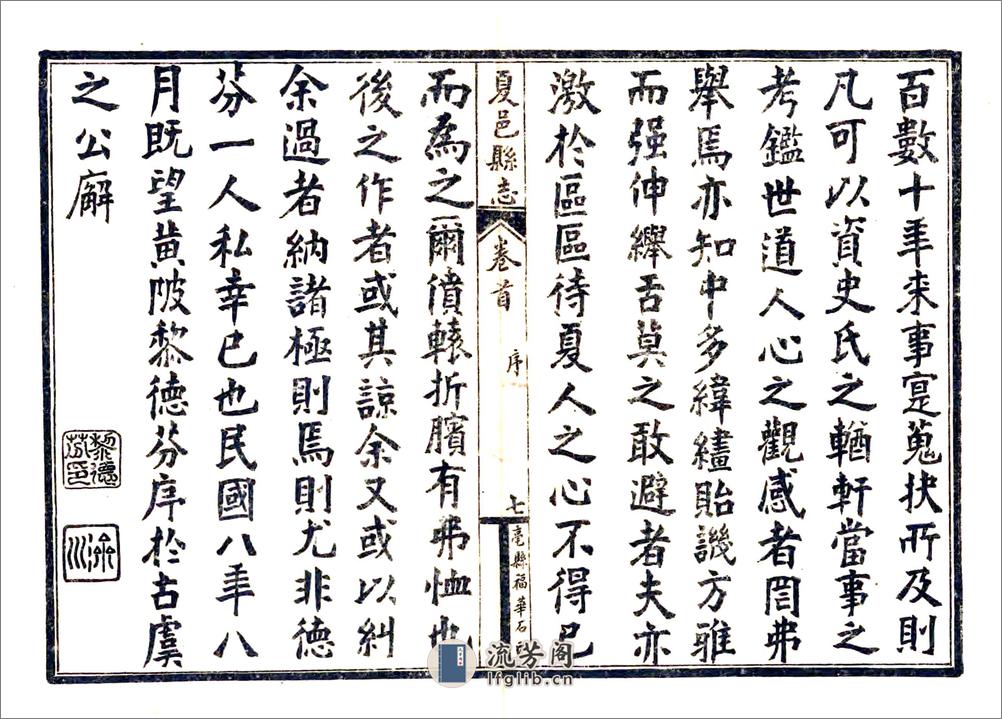 百數十年來事寔蒐抉所及則
凡可以資史氏之輶軒當事之
考鑑世道人心之觀感者罔弗
舉焉亦知中多緯繣貽譏方雅
而强伸繹舌莫之敢避者夫亦
激於區區待夏人之心不得已
夏邑縣志
卷首
序
七
亳縣福華石
而為之爾僨轅折臏有弗恤也
後之作者或其諒余又或以糾
余過者納諸極則焉則尤非德
芬一人私幸已也民國八年八
月既望黄陂黎德芬序於古虞
之公廨
黎德芬印
流芳阁
lfglib.cn